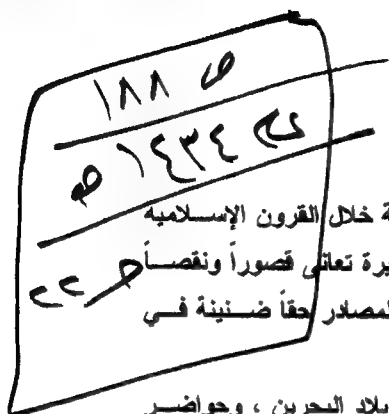 ص ١٨٨
ع ١٤٣٤ ه
ح ٢٢
ة خلال القرون الإسلامية
يرة تعانى قصوراً ونقصاً
لمصادر حقاً ضنينة في
بلاد البحرين ، وحواضر